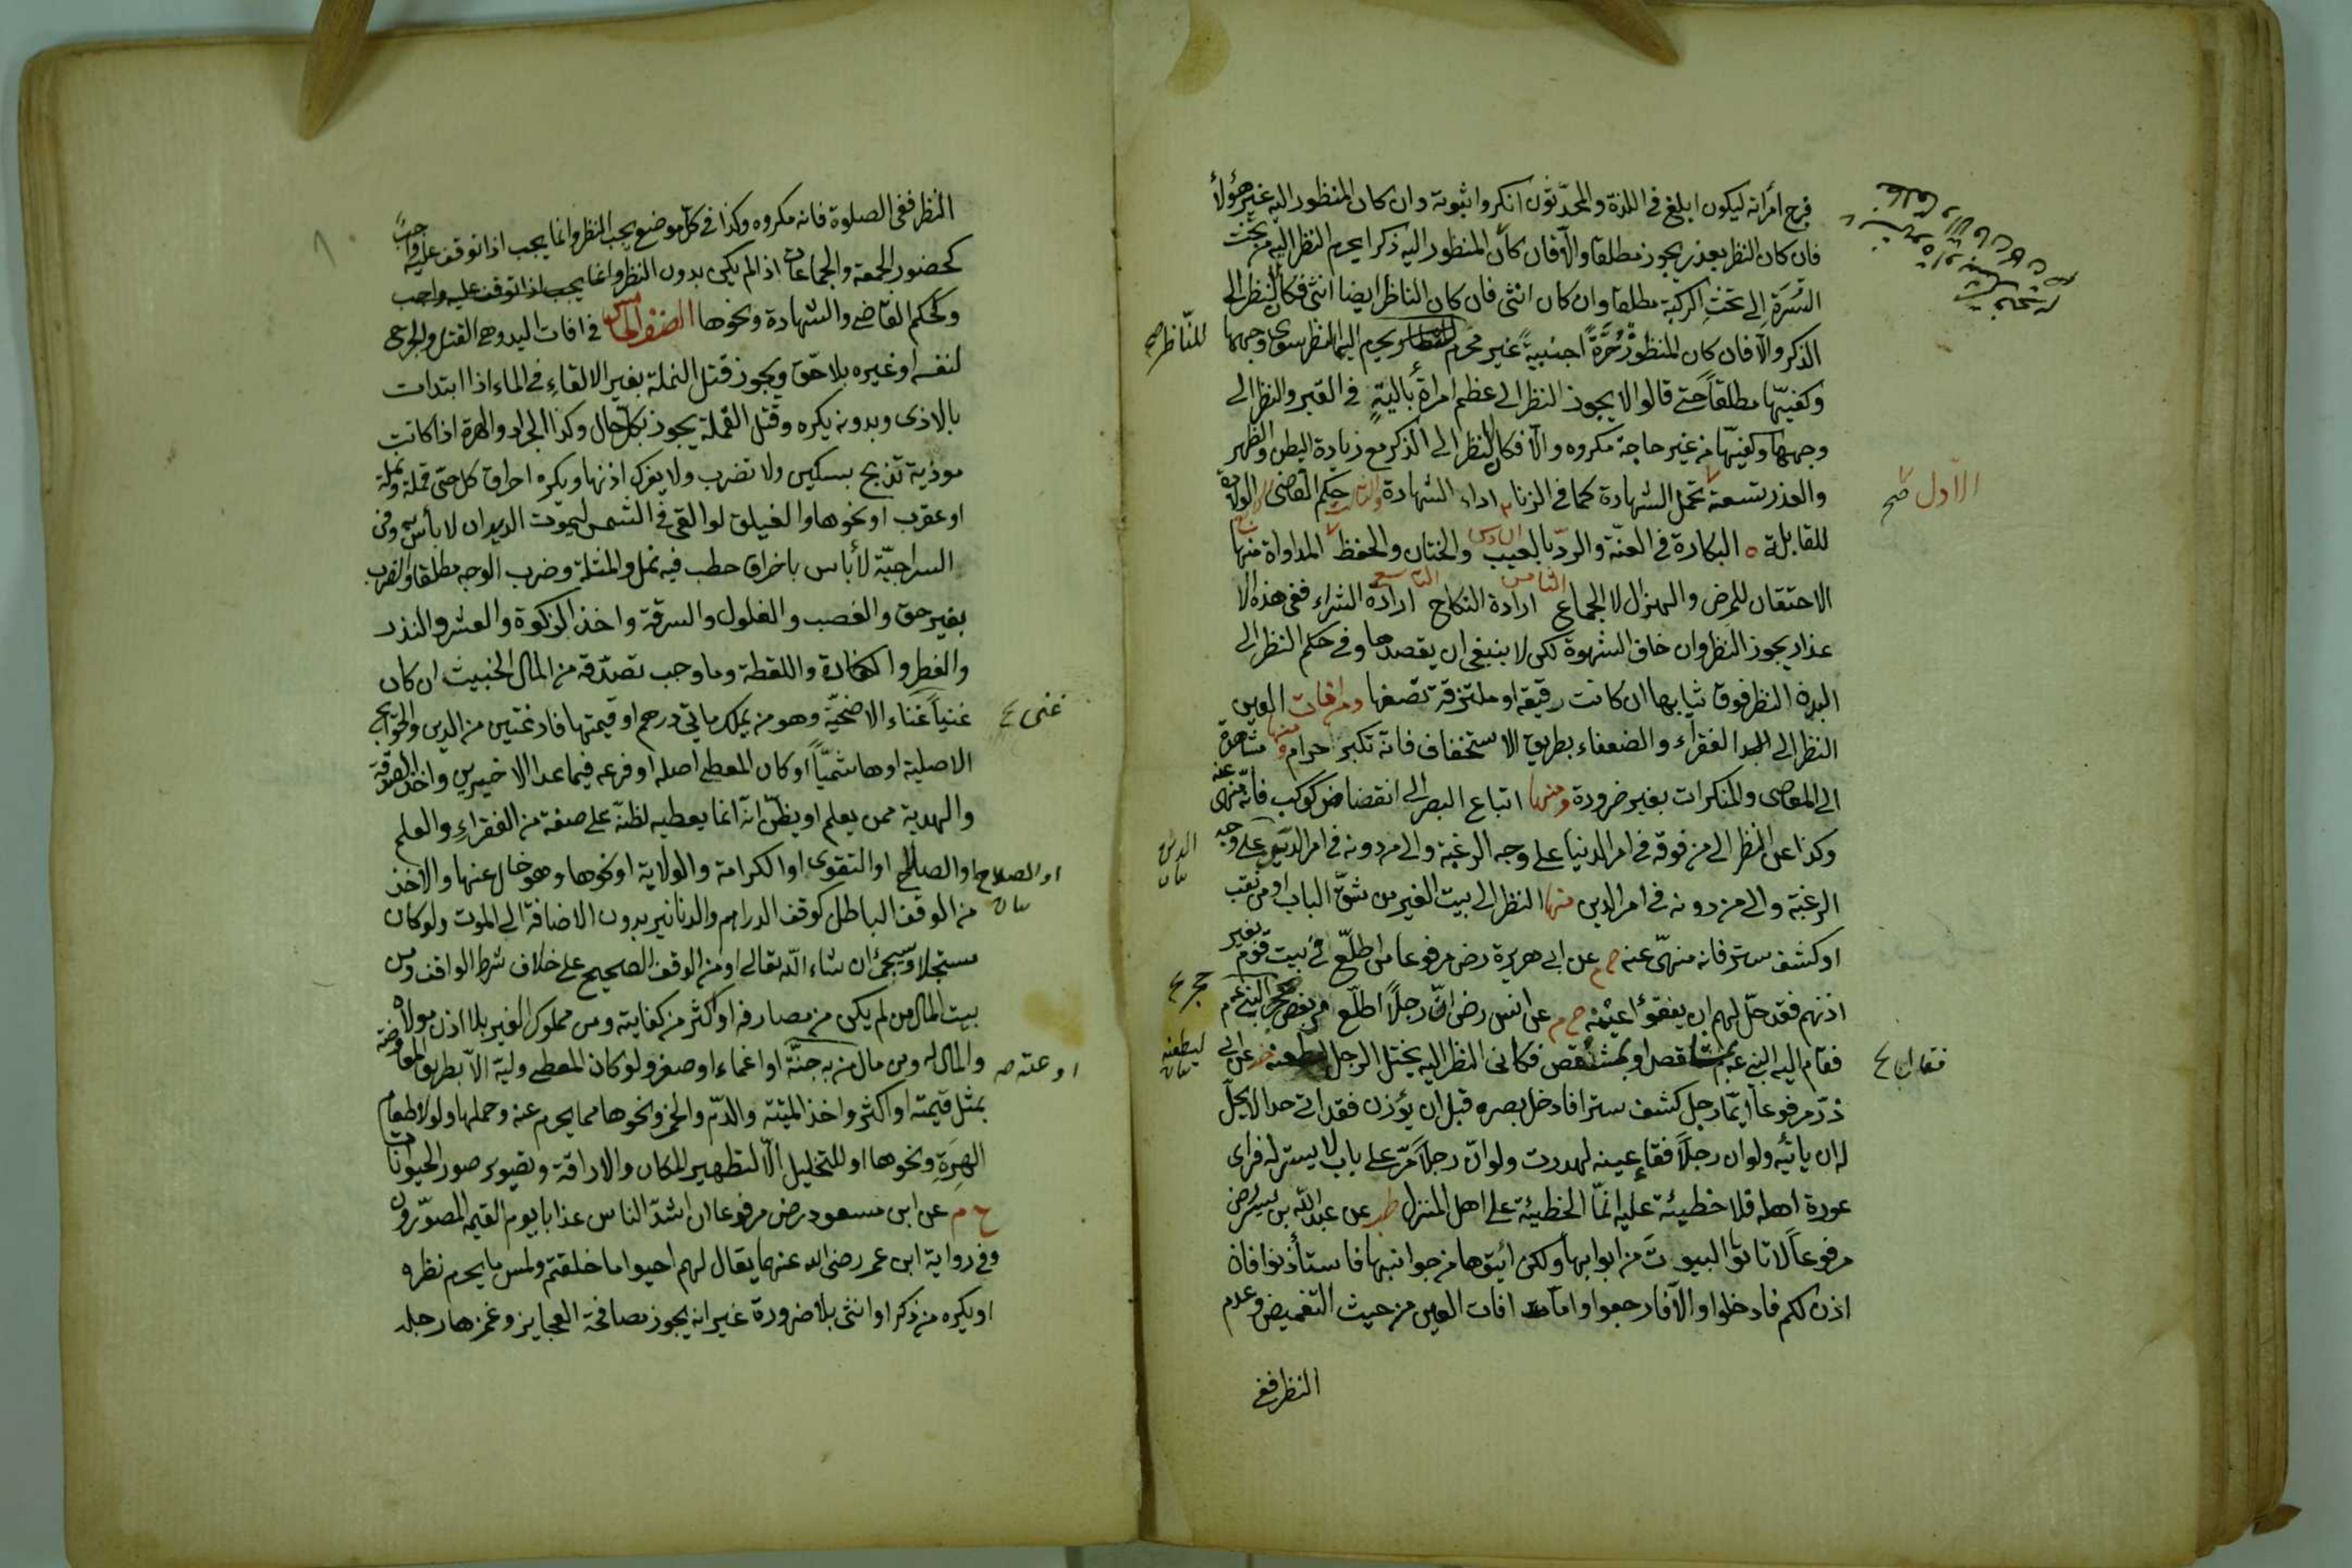 فرج امرأته ليكون ابلغ فى اللذة والمحدّثون انكروا ثبوته وان كان المنظور اليه غير هؤلاء
فان كان النظر بعذر يجوز مطلقا والّا فان كان المنظور اليه ذكرا يحرم النظر اليه من تحت
السُرَّةِ الى تحت الركبة مطلقا وان كان انثى فان كان الناظر ايضا انثى فكالنظر الى
الذكر والّا فان كان المنظورُ حُرَّةً اجنبيةً غير محرم يحرم اليها النظر سوى وجهها
للنّاظر صح
وكفيّها مطلقاً حتى قالوا لا يجوز النظر الى عظم امرأة باليةٍ فى القبر والنظر الى
وجهها وكفيّها من غير حاجة مكروه والّا فكالنظر الى الذكر مع زيادة البطن والظهر
والعذر تسعة تحمل الشهادة كما فى الزنا اداء الشهادة حكم القاضى الولادة
الاوّل صح
للقابلة البكارة فى العنّة والردّ بالعيب السادس والختان والخفظ المداواة منها
الاحتقان للمرض والهزال لا الجماع الثامن ارادة النكاح التاسع ارادة الشراء ففى هذه الا
عذار يجوز النظر وان خاف الشهوة لكن لا ينبغى ان يقصدها وفى حكم النظر الى
البدن النظر فوق ثيابها ان كانت رقيقة او ملتزقة تصفها ومن افات العين
النظر الى الفقراء والضعفاء بطريق الاستخفاف فانّه تكبر حرام ومنها مشاهدة
الى المعاصى والمنكرات بغير ضرورة ومنها اتباع البصر الى انقضاض كوكب فانّه منهى عنه
وكذا عن النظر الى من فوقه فى امر الدنيا على وجه الرغبة والى من دونه فى امر الدين على وجه
الدين بيان
الرغبة والى من دونه فى امر الدين منها النظر الى بيت الغير من شقّ الباب او من ثقب
او كشف ستر فانه منهىّ عنه خ م عن ابى هريرة رض مرفوعا من اطلّع فى بيت قوم بغير
اذنهم فقد حلّ لهم ان يفقؤا عينه خ م عن انس رض انّ رجلاً اطلّع من بعض حجر النبى عم
حجر ع
فقام اليه النبى عم بمشقص او بمشاقص فكانى انظر اليه يختل الرجل ليطعنه عن ابى
فقام ع
ليطعنه بيان
ذرّ مرفوعا ايّما رجل كشف سترا فادخل بصره قبل ان يؤذن فقد اتى حدا لا يحلّ
له ان ياتيه ولو ان رجلاً فقأ عينه لهدرت ولو انّ رجلاً مرّ على باب لا ستر له فراى
عورة اهله فلا خطيئة عليه انّما الخطيئة على اهل المنزل طب عن عبد الله بن بسر رض
مرفوعاً لا تاتوا البيوت من ابوابها ولكن ائتوها من جوانبها فاستأذنوا فان
اذن لكم فادخلوا والّا فارجعوا وامّا افات العين من حيث التغميض وعدم
النظر ففى
النظر ففى الصلوة فانه مكروه وكذا فى كلّ موضع يجب النظر وانما يجب اذا توقف عليه واجبٌ
كحضور الجمعة والجماعات اذ المريكن بدون النظر وانما يجب اذا توقف عليه واجب
وكحكم القاضى والشهادة ونحوها الصنف الخامس فى افات اليد وهى القتل والجرح
لنفسه او غيره بلا حقّ ويجوز قتل النملة بغير الالقاءِ فى الماء اذا ابتدات
بالاذى وبدونه يكره وقتل القملة يجوز بكلّ حال وكذا الجراد والهرة اذا كانت
موذية تذبح بسكين ولا تضرب ولا يفرك اذنها ويكره احراق كل حىّ قملة ونملة
او عقرب او نحوها والفيلق لو القى فى الشمس ليموت الديدان لا بأس به وفى
السراجيّة لا بأس باحراق حطب فيه نمل والمثلة وضرب الوجه مطلقا والضرب
بغير حق والغصب والغلول والسرقة واخذ الزكوة والعشر والنذر
والفطر والكفارة واللقطة وما وجب تصدّقه من المال الخبيث ان كان
غنياً غناء الاضحيّة وهو من يملك مائتى درهم او قيمتها فارغتين من الدين والحوايج
غنى ع
الاصلية او هاشميّاً او كان المعطى اصله او فرعه فيما عدا الاخيرين واخذ الصدقة
والهدية ممن يعلم او يظنّ انّه انما يعطيه لظنّه على صفة من الفقراءِ والعلم
او الصلاح او التقوى او الكرامة والولاية او نحوها وهو خال عنها والاخذ
او الصلاح بيان
من الوقف الباطل كوقف الدراهم والدنانير بدون الاضافة الى الموت ولو كان
مسجّلا وسيجئ ان شاء الله تعالى او من الوقف الصحيح على خلاف شرط الواقف ومن
بيت المال من لم يكن من مصارفه او اكثر من كفايته ومن مملوك الغير بلا اذن مولاه
والمال له ومن مال من به جنّة او اغماء او صغر ولو كان المعطى وليّه الّا بطريق المعاوضة
او عته صح
بمثل قيمته او اكثر واخذ الميتة والدم والخمر ونحوها مما يحرم عنه وحملها ولو لاطعام
الهِرَةِ ونحوها او للتخليل الّا لتطهير المكان والاراقة وتصوير صور الحيوانات
خ م عن ابن مسعود رض مرفوعا ان اشدّ الناس عذابا يوم القيمة المصوّرون
وفى رواية ابن عمر رضى الله عنهما يقال لهم احيوا ما خلقتم ولمس ما يحرم نظره
او يكره من ذكر او انثى بلا ضرورة غير انه يجوز مصافحة العجايز وغمزها رجله